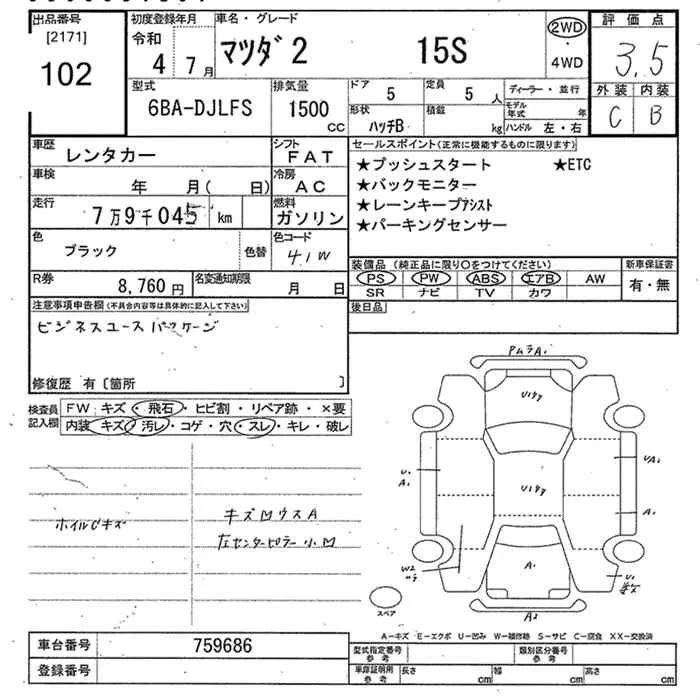 出品番号
[2171]
102
初度登録年月
令和
4 7月
車名・グレード
マツダ2 15S
2WD
4WD
評価点
3.5
外装 内装
C B
型式
6BA-DJLFS
排気量
1500
CC
ドア
5
定員
5人
形状
ハッチB
積載
kg
ディーラー・並行
モデル年式 年
ハンドル 左・右
車歴
レンタカー
シフト
FAT
車検
年 月( 日)
冷房
AC
走行
7万9千045 km
燃料
ガソリン
色
ブラック
色替
色コード
41W
R券
8,760円
名変通知期限
月 日
セールスポイント(正常に機能するものに限ります)
★プッシュスタート ★ETC
★バックモニター
★レーンキープアシスト
★パーキングセンサー
装備品(純正品に限り○をつけてください)
PS PW ABS エアB AW
SR ナビ TV カワ
新車保証書
有・無
後日品
注意事項申告欄(不具合内容等は具体的に記入して下さい)
ビジネスユースパッケージ
修復歴 有〔箇所 〕
検査員記入欄
FW:キズ・飛石・ヒビ割・リペア跡・×要
内装:キズ・汚レ・コゲ・穴・スレ・キレ・破レ
ホイルCキズ
左センターピラー小凹
U1ケケ
U1ケケ
U1
A1
UA1
A1
W2
A1
U1
A2
スペア
A−キズ E−エクボ U−凹み W−補修跡 S−サビ C−腐食 XX−交換済
車台番号
759686
登録番号
型式指定番号
参考
類別区分番号
参考
車庫証明用
参考
長さ cm
幅 cm
高さ cm